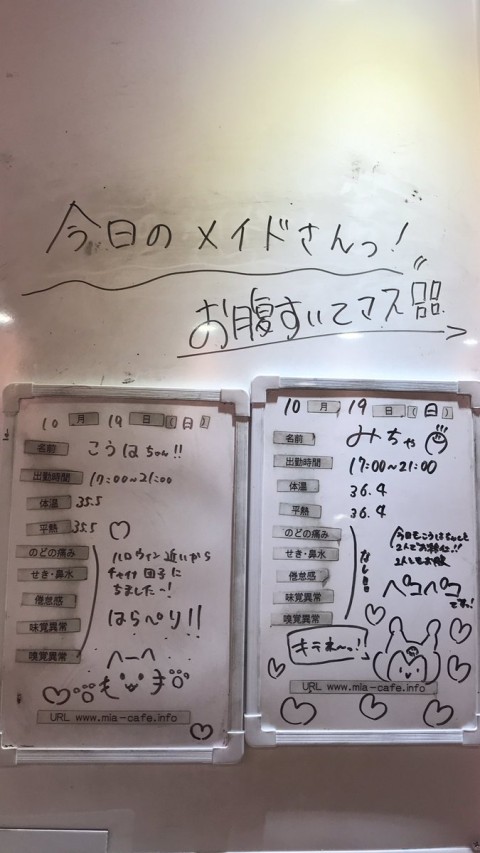 今日のメイドさんっ!
お腹すいてマス
10月19日(日)
名前 こうはちゃん!!
出勤時間 17:00~21:00
体温 35.5
平熱 35.5 ♡
のどの痛み
せき・鼻水
倦怠感
味覚異常
嗅覚異常
ハロウィン近いから
チャイナ団子に
しました~!
はらぺり!!
URL www.mia-cafe.info
10月19日(日)
名前 みちゃ
出勤時間 17:00~21:00
体温 36.4
平熱 36.4
のどの痛み
せき・鼻水
倦怠感
味覚異常
嗅覚異常
なし
今日もこうはちゃんと
2人でお給仕!!
2人してお腹
ペコペコ
です!
キテネ~っ!
URL www.mia-cafe.info